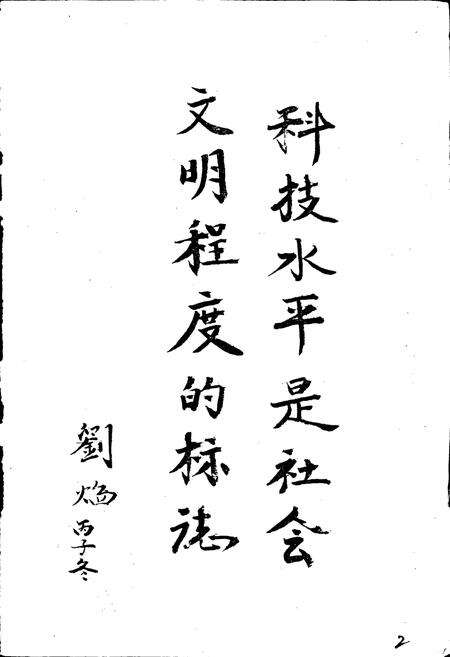 科技水平是社会
文明程度的标誌
劉焔 丙子冬
2